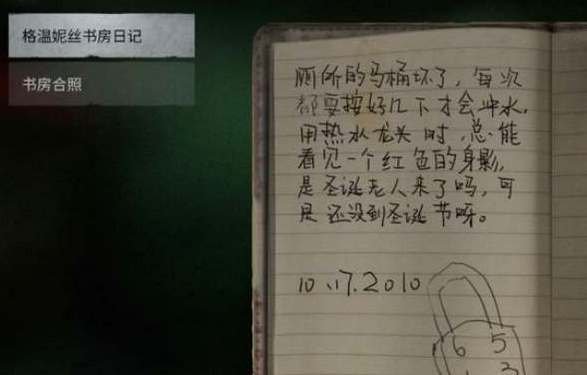 格温妮丝书房日记
书房合照
厕所的马桶坏了，每次
都要按好几下才会冲水，
用热水龙头时，总能
看见一个红色的身影，
是圣诞老人来了吗，可
是还没到圣诞节呀。
10.17.2010
6 5